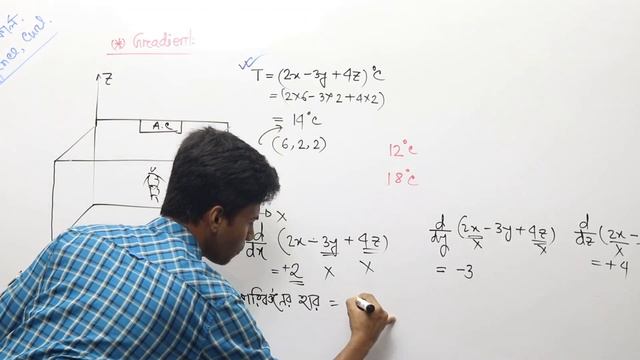 (*) Gradient:
Z
A.C
T = (2x - 3y + 4z) °C
= (2×6 - 3×2 + 4×2)
= 14°C
(6, 2, 2)
12°C
18°C
x
d/dx (2x - 3y + 4z)
= +2 x x
d/dy (2x - 3y + 4z)
x x
= -3
d/dz (2x -
x
= +4
পরিবর্তনের হার =